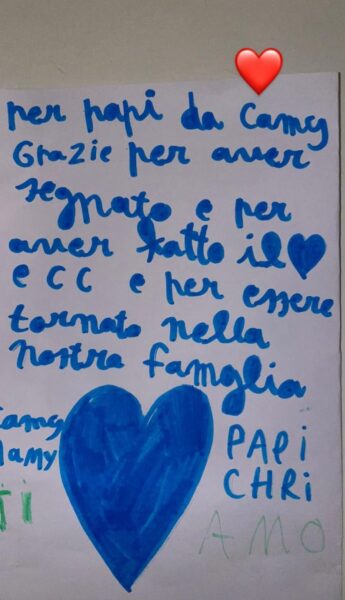 per papi da Camy
Grazie per aver
segnato e per
aver fatto il
e CC e per essere
tornato nella
nostra famglia
Camy
Mamy
PAPI
CHRI
TI
AMO